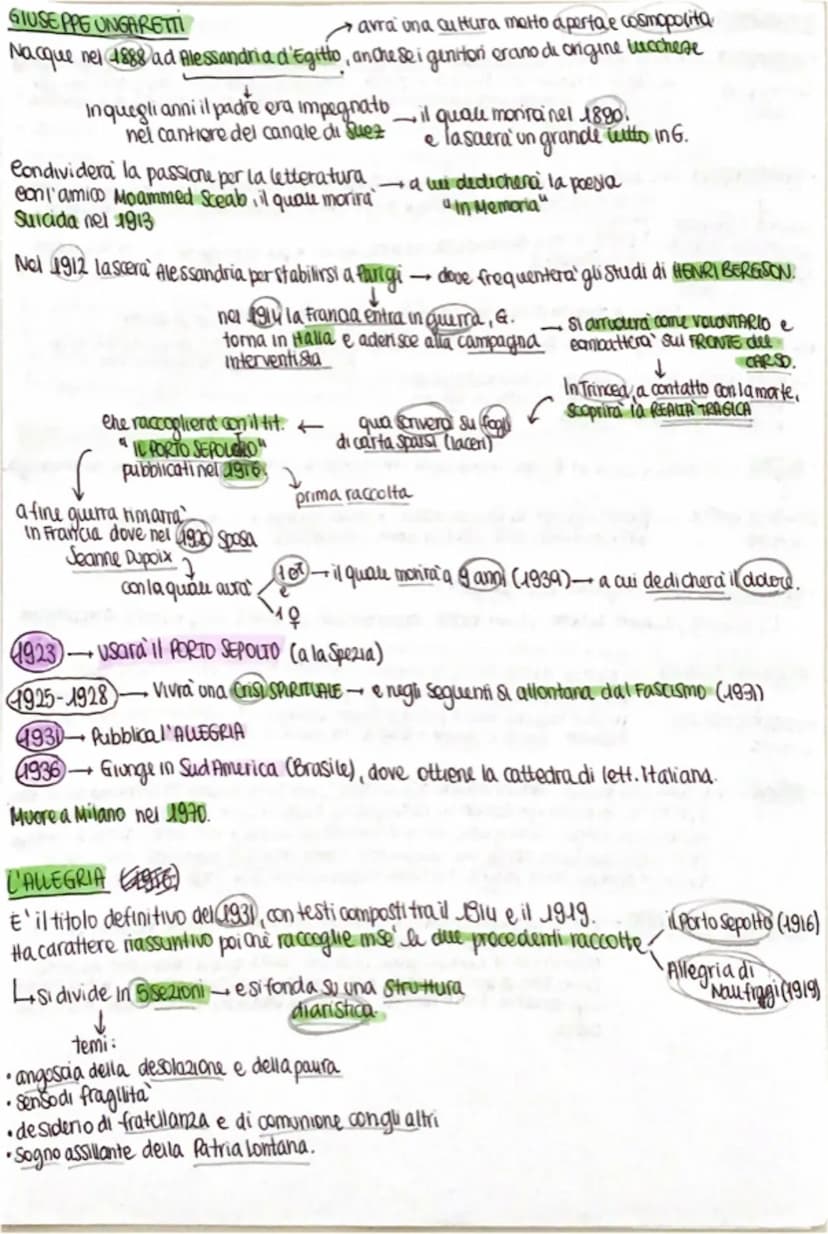 GIUSEPPE UNGARETTI
→ avrà una cultura molto aperta e cosmopolita
Nacque nel 1888 ad Alessandria d'Egitto, anche se i genitori erano di origine lucchese
In quegli anni il padre era impegnato → il quale morirà nel 1890.
nel cantiere del canale di Suez e lascerà un grande lutto in G.
Condividerà la passione per la letteratura → a lui dedicherà la poesia
con l'amico Moammed Sceab, il quale morirà "In Memoria"
Suicida nel 1913
Nel 1912 lascerà Alessandria per stabilirsi a Parigi → dove frequenterà gli studi di HENRI BERGSON.
nel 1914 la Francia entra in guerra, G. → si arruolerà come VOLONTARIO e
torna in Italia e aderisce alla campagna combatterà sul FRONTE del
interventista CARSO.
In Trincea, a contatto con la morte,
scoprirà la REALTÀ TRAGICA
che raccoglierà con il tit. ← qua scriverà su fogli
"IL PORTO SEPOLTO" di carta sparsi (laceri)
pubblicati nel 1916.
prima raccolta
a fine guerra rimarrà
in Francia dove nel 1920 sposa
Jeanne Dupoix
con la quale avrà 1♂ → il quale morirà a 9 anni (1939) → a cui dedicherà il dolore.
e
1♀
1923 → usarà il PORTO SEPOLTO (a la Spezia)
1925-1928 → Vivrà una Crisi SPIRITUALE → e negli seguenti si allontana dal Fascismo (1931)
1931 → Pubblica l'ALLEGRIA
1936 → Giunge in Sud America (Brasile), dove ottiene la cattedra di lett. Italiana.
Muore a Milano nel 1970.
L'ALLEGRIA
E' il titolo definitivo del 1931, con testi composti tra il 1914 e il 1919. il Porto Sepolto (1916)
Ha carattere riassuntivo poiché raccoglie in sé, le due precedenti raccolte
Allegria di
Naufraggi (1919)
↳ si divide in 5 sezioni → e si fonda su una struttura
diaristica.
temi:
• angoscia della desolazione e della paura
• senso di fragilità
• desiderio di fratellanza e di comunione con gli altri
• Sogno assillante della Patria Lontana.